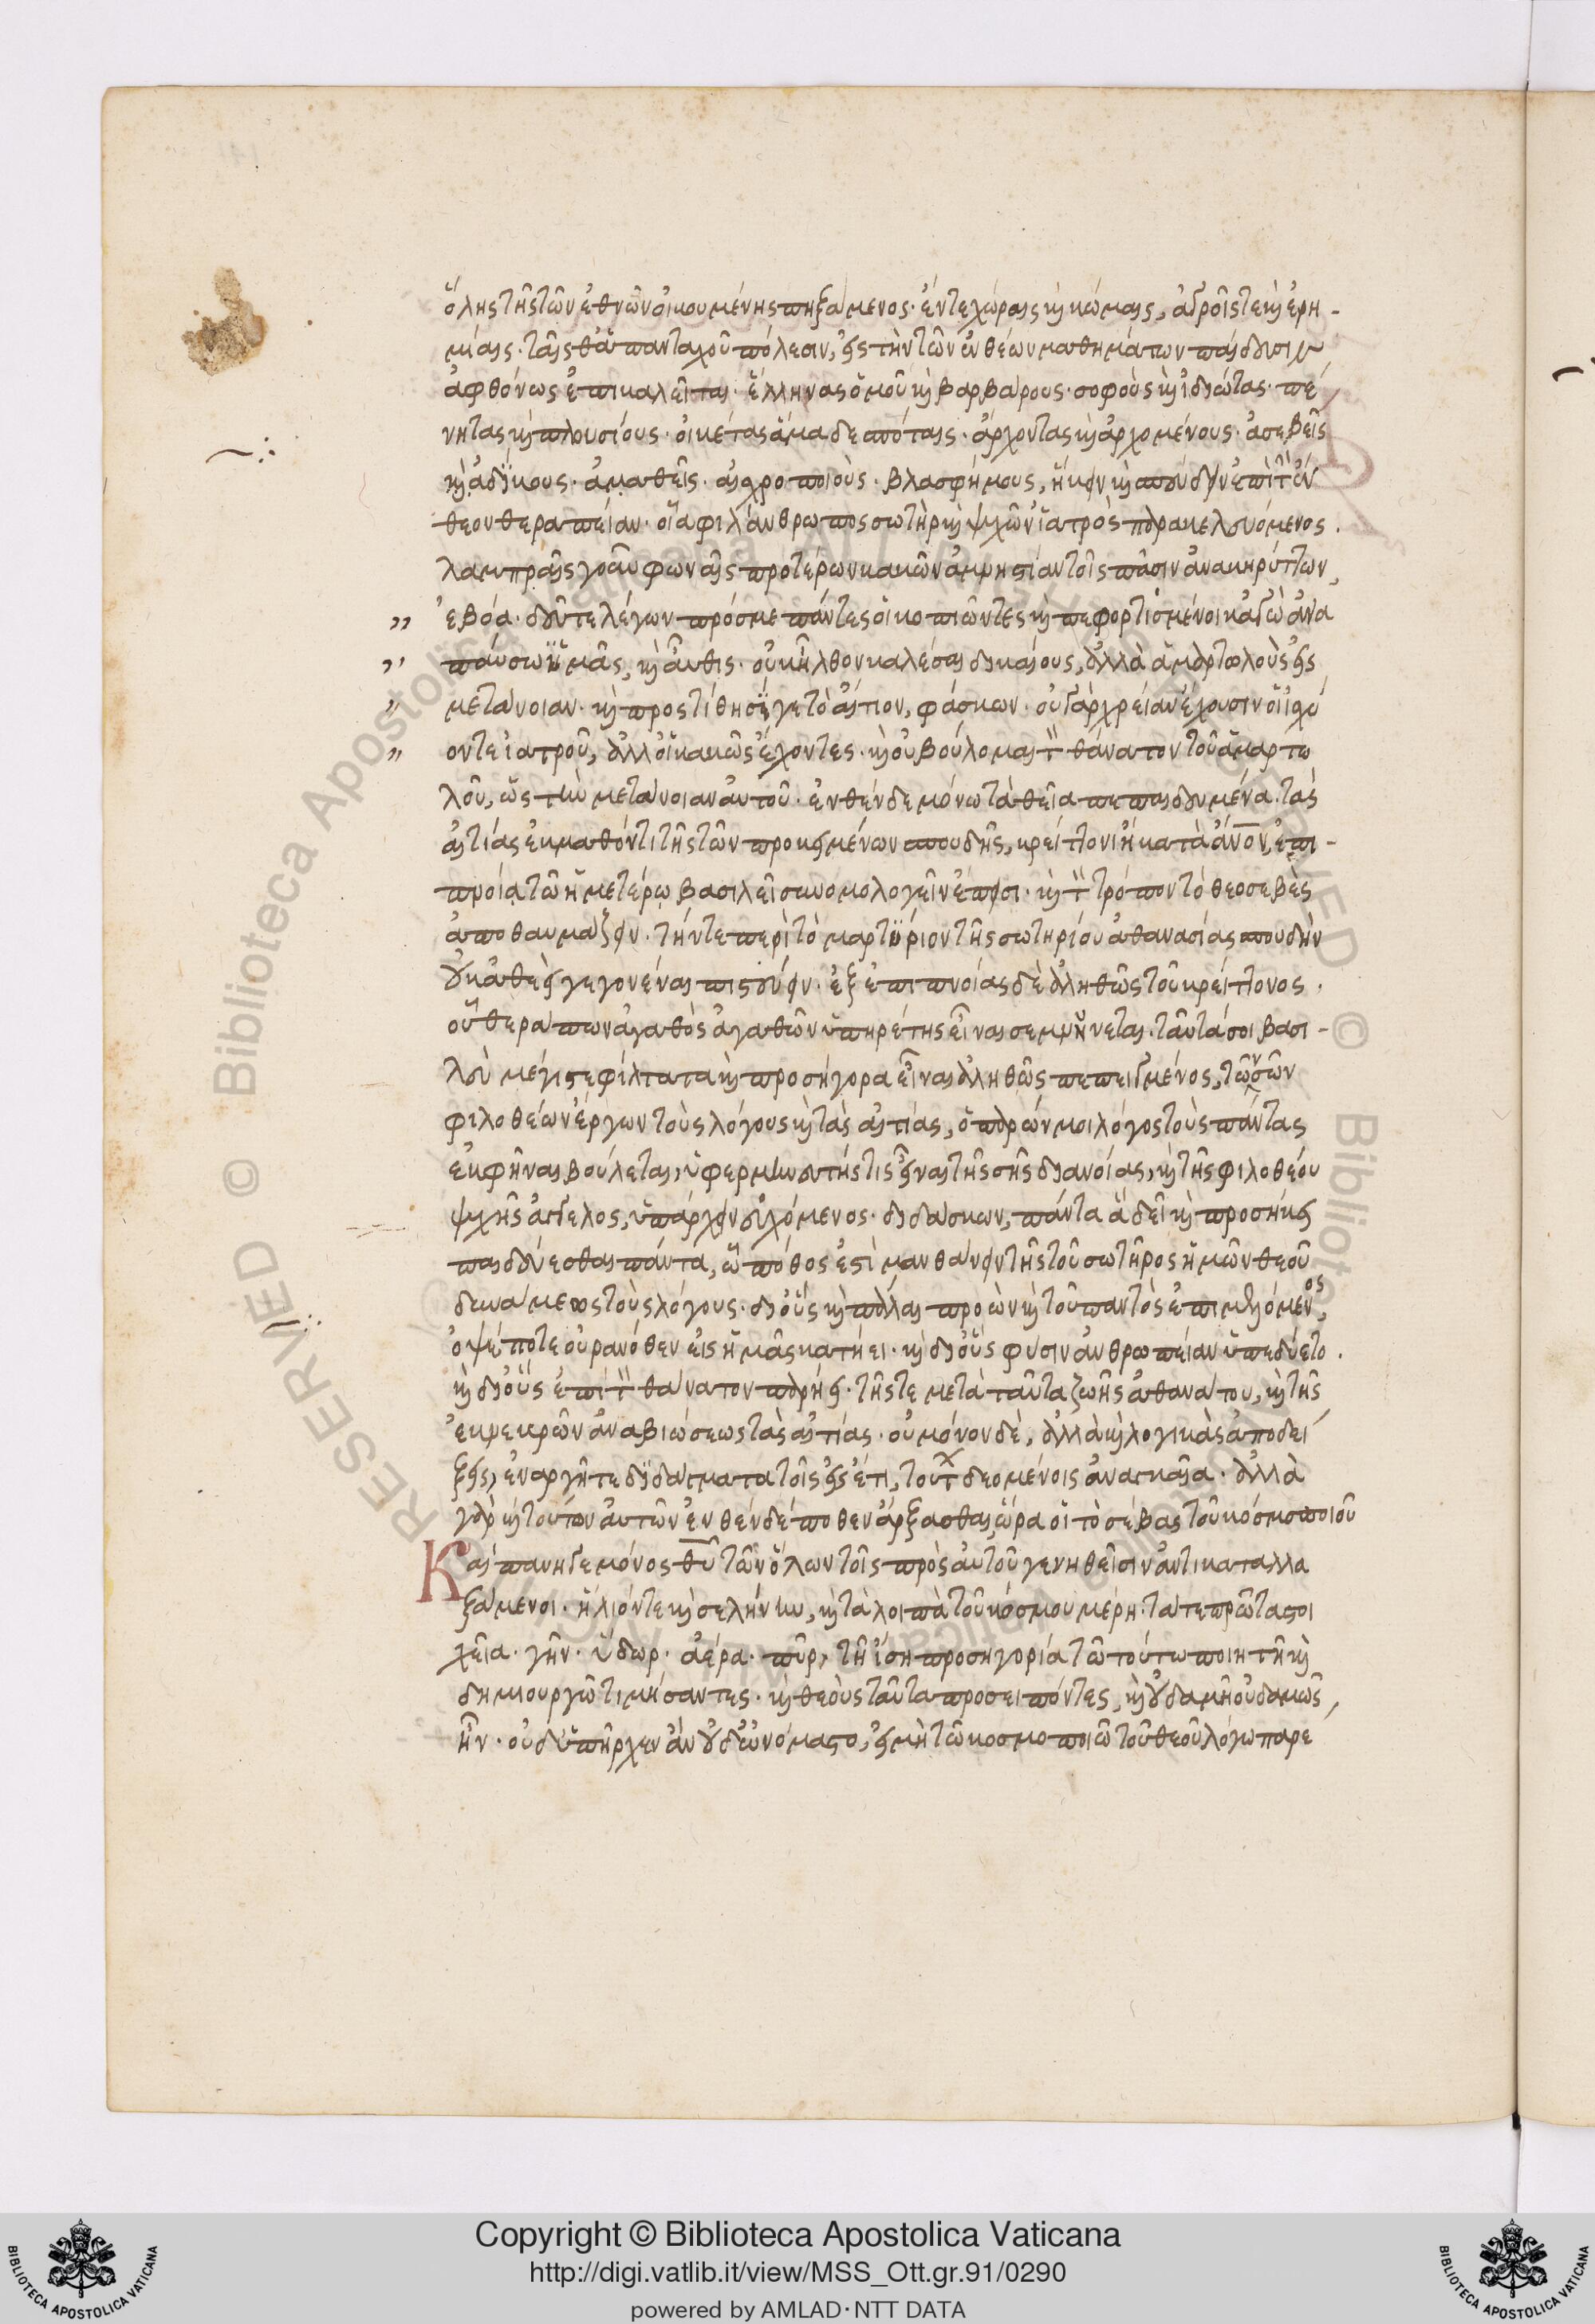 ὅλης τῆς τῶν ἐθνῶν οἰκουμένης πηξάμενος· ἔν τε χώραις καὶ κώμαις, ἀγροῖς τε καὶ ἐρη-
μίαις· ταῖς θ' ἁπανταχοῦ πόλεσιν, εἰς τὴν τῶν ἐνθέων μαθημάτων παίδευσιν
ἀφθόνως ἐπικαλεῖται· ἕλληνας ὁμοῦ καὶ βαρβάρους· σοφοὺς καὶ ἰδιώτας· πέ
νητας καὶ πλουσίους· οἰκέτας ἅμα δεσπόταις· ἄρχοντας καὶ ἀρχομένους· ἀσεβεῖς
καὶ ἀδίκους· ἀμαθεῖς· αἰσχροποιοὺς· βλασφήμους, ἥκειν καὶ σπεύδειν ἐπὶ τὴν ἔν
θεον θεραπείαν· οἷα φιλάνθρωπος σωτὴρ καὶ ψυχῶν ἰατρὸς παρακελευόμενος.
λαμπραῖς γοῦν φωναῖς προτέρων κακῶν ἀμνηστίαν τοῖς πᾶσιν ἀνακηρύττων,
" ἐβόα· δεῦτε λέγων πρός με πάντες οἱ κοπιῶντες καὶ πεφορτισμένοι κἀγὼ ἀνα
" παύσω ὑμᾶς, καὶ αὖθις· οὐκ ἦλθον καλέσαι δικαίους, ἀλλὰ ἁμαρτωλοὺς εἰς
" μετάνοιαν· καὶ προστίθησί γε τὸ αἴτιον, φάσκων· οὐ γὰρ χρείαν ἔχουσιν οἱ ἰσχύ
" οντε ἰατροῦ, ἀλλ' οἱ κακῶς ἔχοντες· καὶ οὐ βούλομαι τὸν θάνατον τοῦ ἁμαρτω
λοῦ, ὡς τὴν μετάνοιαν αὐτοῦ· ἐνθένδε μόνω τὰ θεῖα πεπαιδευμένα· τὰς
αἰτίας ἐκμαθόντι τῆς τῶν προκειμένων σπουδῆς, κρείττονι ἢ κατὰ ἄνον, ἐπι-
πνοία τῶ ἡμετέρω βασιλεῖ συνομολογεῖν ἔπεισι· καὶ τὸν τρόπον τὸ θεοσεβὲς
ἀποθαυμάζειν· τήν τε περὶ τὸ μαρτύριον τῆς σωτηρίου ἀθανασίας σπουδὴν
οὐκ ἀθεεὶ γεγονέναι πιστεύειν· ἐξ ἐπιπνοίας δὲ ἀληθῶς τοῦ κρείττονος.
οὗ θεράπων ἀγαθὸς ἀγαθῶν ὑπηρέτης εἶναι σεμνύνεται. ταῦτά σοι βασι-
λεῦ μέγιστε φίλτατα καὶ προσήγορα εἶναι ἀληθῶς πεπεισμένος, τῶν σῶν
φιλοθέων ἔργων τοὺς λόγους καὶ τὰς αἰτίας, ὁ παρών μοι λόγος τοὺς πάντας
ἐκφῆναι βούλεται, ὑφερμηνευτής τις εἶναι τῆς σῆς διανοίας, καὶ τῆς φιλοθέου
ψυχῆς ἄγγελος, ὑπάρχειν εὐχόμενος· διδάσκων, πάντα ἃ δεῖ καὶ προσήκει
παιδεύεσθαι πάντα, ὧ πόθος ἐστὶ μανθάνειν τῆς τοῦ σωτῆρος ἡμῶν θεοῦ
δυνάμεως τοὺς λόγους· δι' οὓς καὶ πάλαι προὼν καὶ τοῦ παντὸς ἐπιμελόμενος,
ὀψέ ποτε οὐρανόθεν εἰς ἡμᾶς κατήει· καὶ δι' οὓς φύσιν ἀνθρωπείαν ὑπεδύετο.
καὶ δι' οὓς ἐπὶ τὸν θάνατον παρήει· τῆς τε μετὰ ταῦτα ζωῆς ἀθανάτου, καὶ τῆς
ἐκ νεκρῶν ἀναβιώσεως τὰς αἰτίας· οὐ μόνον δὲ, ἀλλὰ καὶ λογικὰς ἀποδεί
ξεις, ἐναργῆ τε δείγματα τοῖς εἰσέτι, τούτων δεομένοις ἀναγκαῖα· ἀλλὰ
γὰρ καὶ τούτων αὐτῶν ἐνθένδέ ποθεν ἄρξασθαι ὥρα οἱ τὸ σέβας τοῦ κοσμοποιοῦ
Καὶ πανηγεμόνος θυ τῶν ὅλων τοῖς πρὸς αὐτοῦ γενηθεῖσιν ἀντικαταλλα
ξάμενοι· ἥλιόν τε καὶ σελήνην, καὶ τὰ λοιπὰ τοῦ κόσμου μέρη· τά τε πρῶτα στοι
χεῖα· γῆν· ὕδωρ· ἀέρα· πῦρ, τῆ ἴση προσηγορία τῶ τούτω ποιητῆ καὶ
δημιουργῶ τιμήσαντες· καὶ θεοὺς ταῦτα προσειπόντες, καὶ οὐδαμῆ οὐδαμῶς
ἦν· οὐδ' ὑπῆρχεν ἂν οὐδ' ὠνόμαστο, εἰ μὴ τῶ κοσμοποιῶ τοῦ θεοῦ λόγω παρε
© Biblioteca Apostolica Vaticana ALL RIGHTS RESERVED
Copyright © Biblioteca Apostolica Vaticana
http://digi.vatlib.it/view/MSS_Ott.gr.91/0290
powered by AMLAD·NTT DATA
BIBLIOTECA APOSTOLICA VATICANA
BIBLIOTECA APOSTOLICA VATICANA